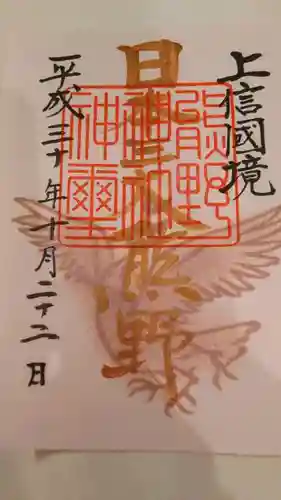 上信國境
日本三大熊野
熊野
神社
神璽
平成三十年十月二十二日